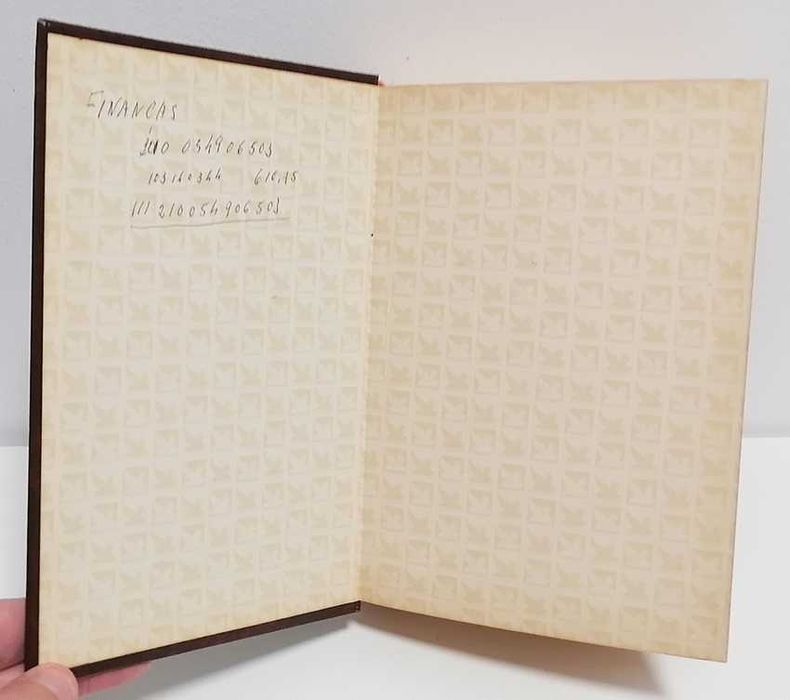 FINANCAS
034906503
103160344 616,15
111 210054906503